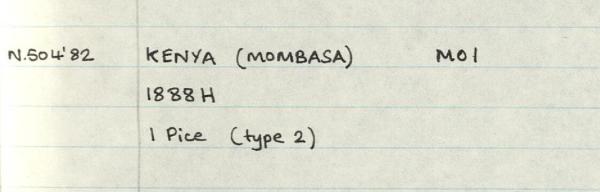 N.504'82 KENYA (MOMBASA) MO1
1888 H
1 Pice (type 2)